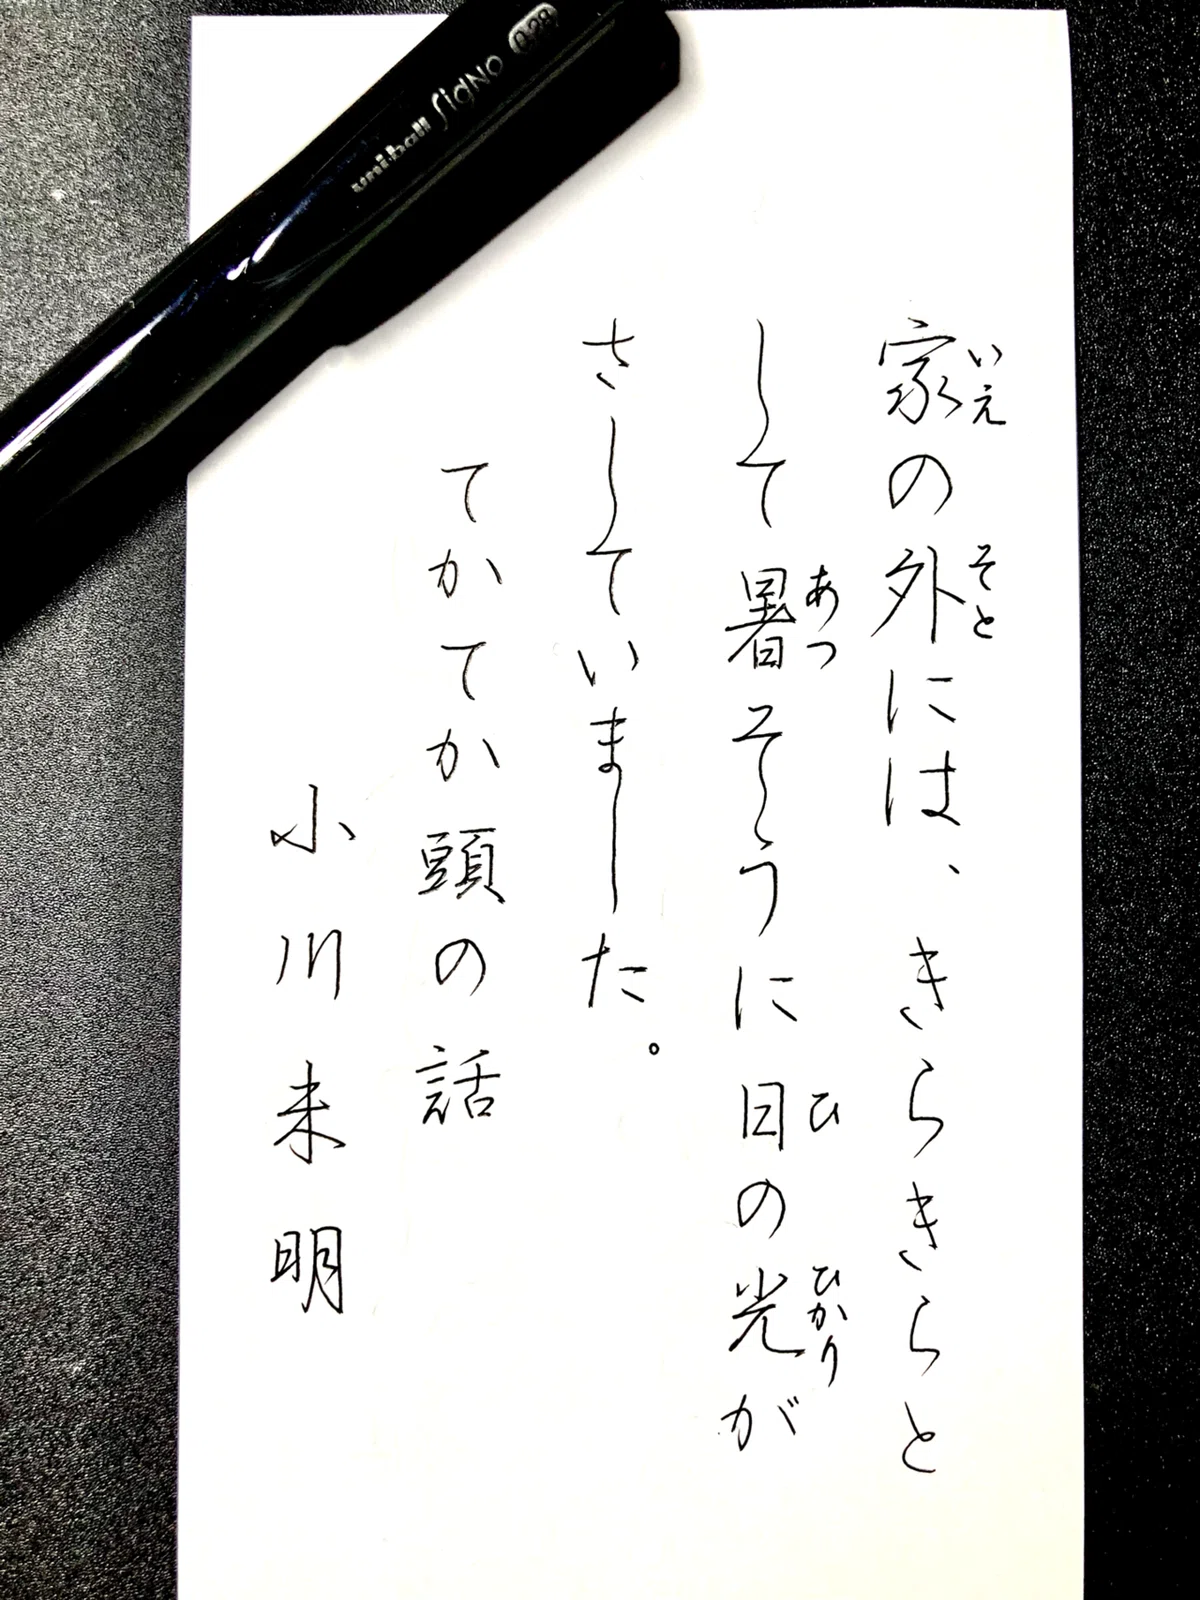 家の外には、きらきらと
いえ そと
して暑そうに日の光が
あつ ひ ひかり
さしていました。
てかてか頭の話
小川未明
uni-ball SigNo 0.28